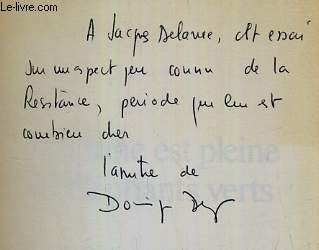 Le-livre.com
A Jacques Delarue, cet essai
sur un aspect peu connu de la
Résistance, période qui lui est
combien cher
l'amitié de